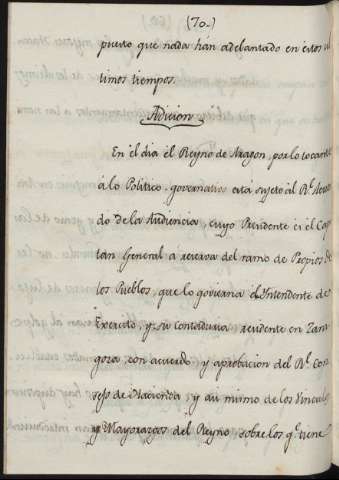 (70.)
puesto que nada han adelantado en estos ul
timos tiempos.
Adicion
En el dia el Reyno de Aragon, por lo tocante
á lo Politico-governativo está sujeto al Rl. Acuer
do de la Audiencia, cuyo Presidente es el Capi
tan General á reserva del ramo de Propios de
los Pueblos, que lo govierna el Intendente de
Exercito, y su contaduria residente en Zara
goza con acuerdo y aprobacion del Rl. Con
sejo de Hacienda, y asi mismo de los Vinculos
y Mayorazgos del Reyno sobre los qe. tiene